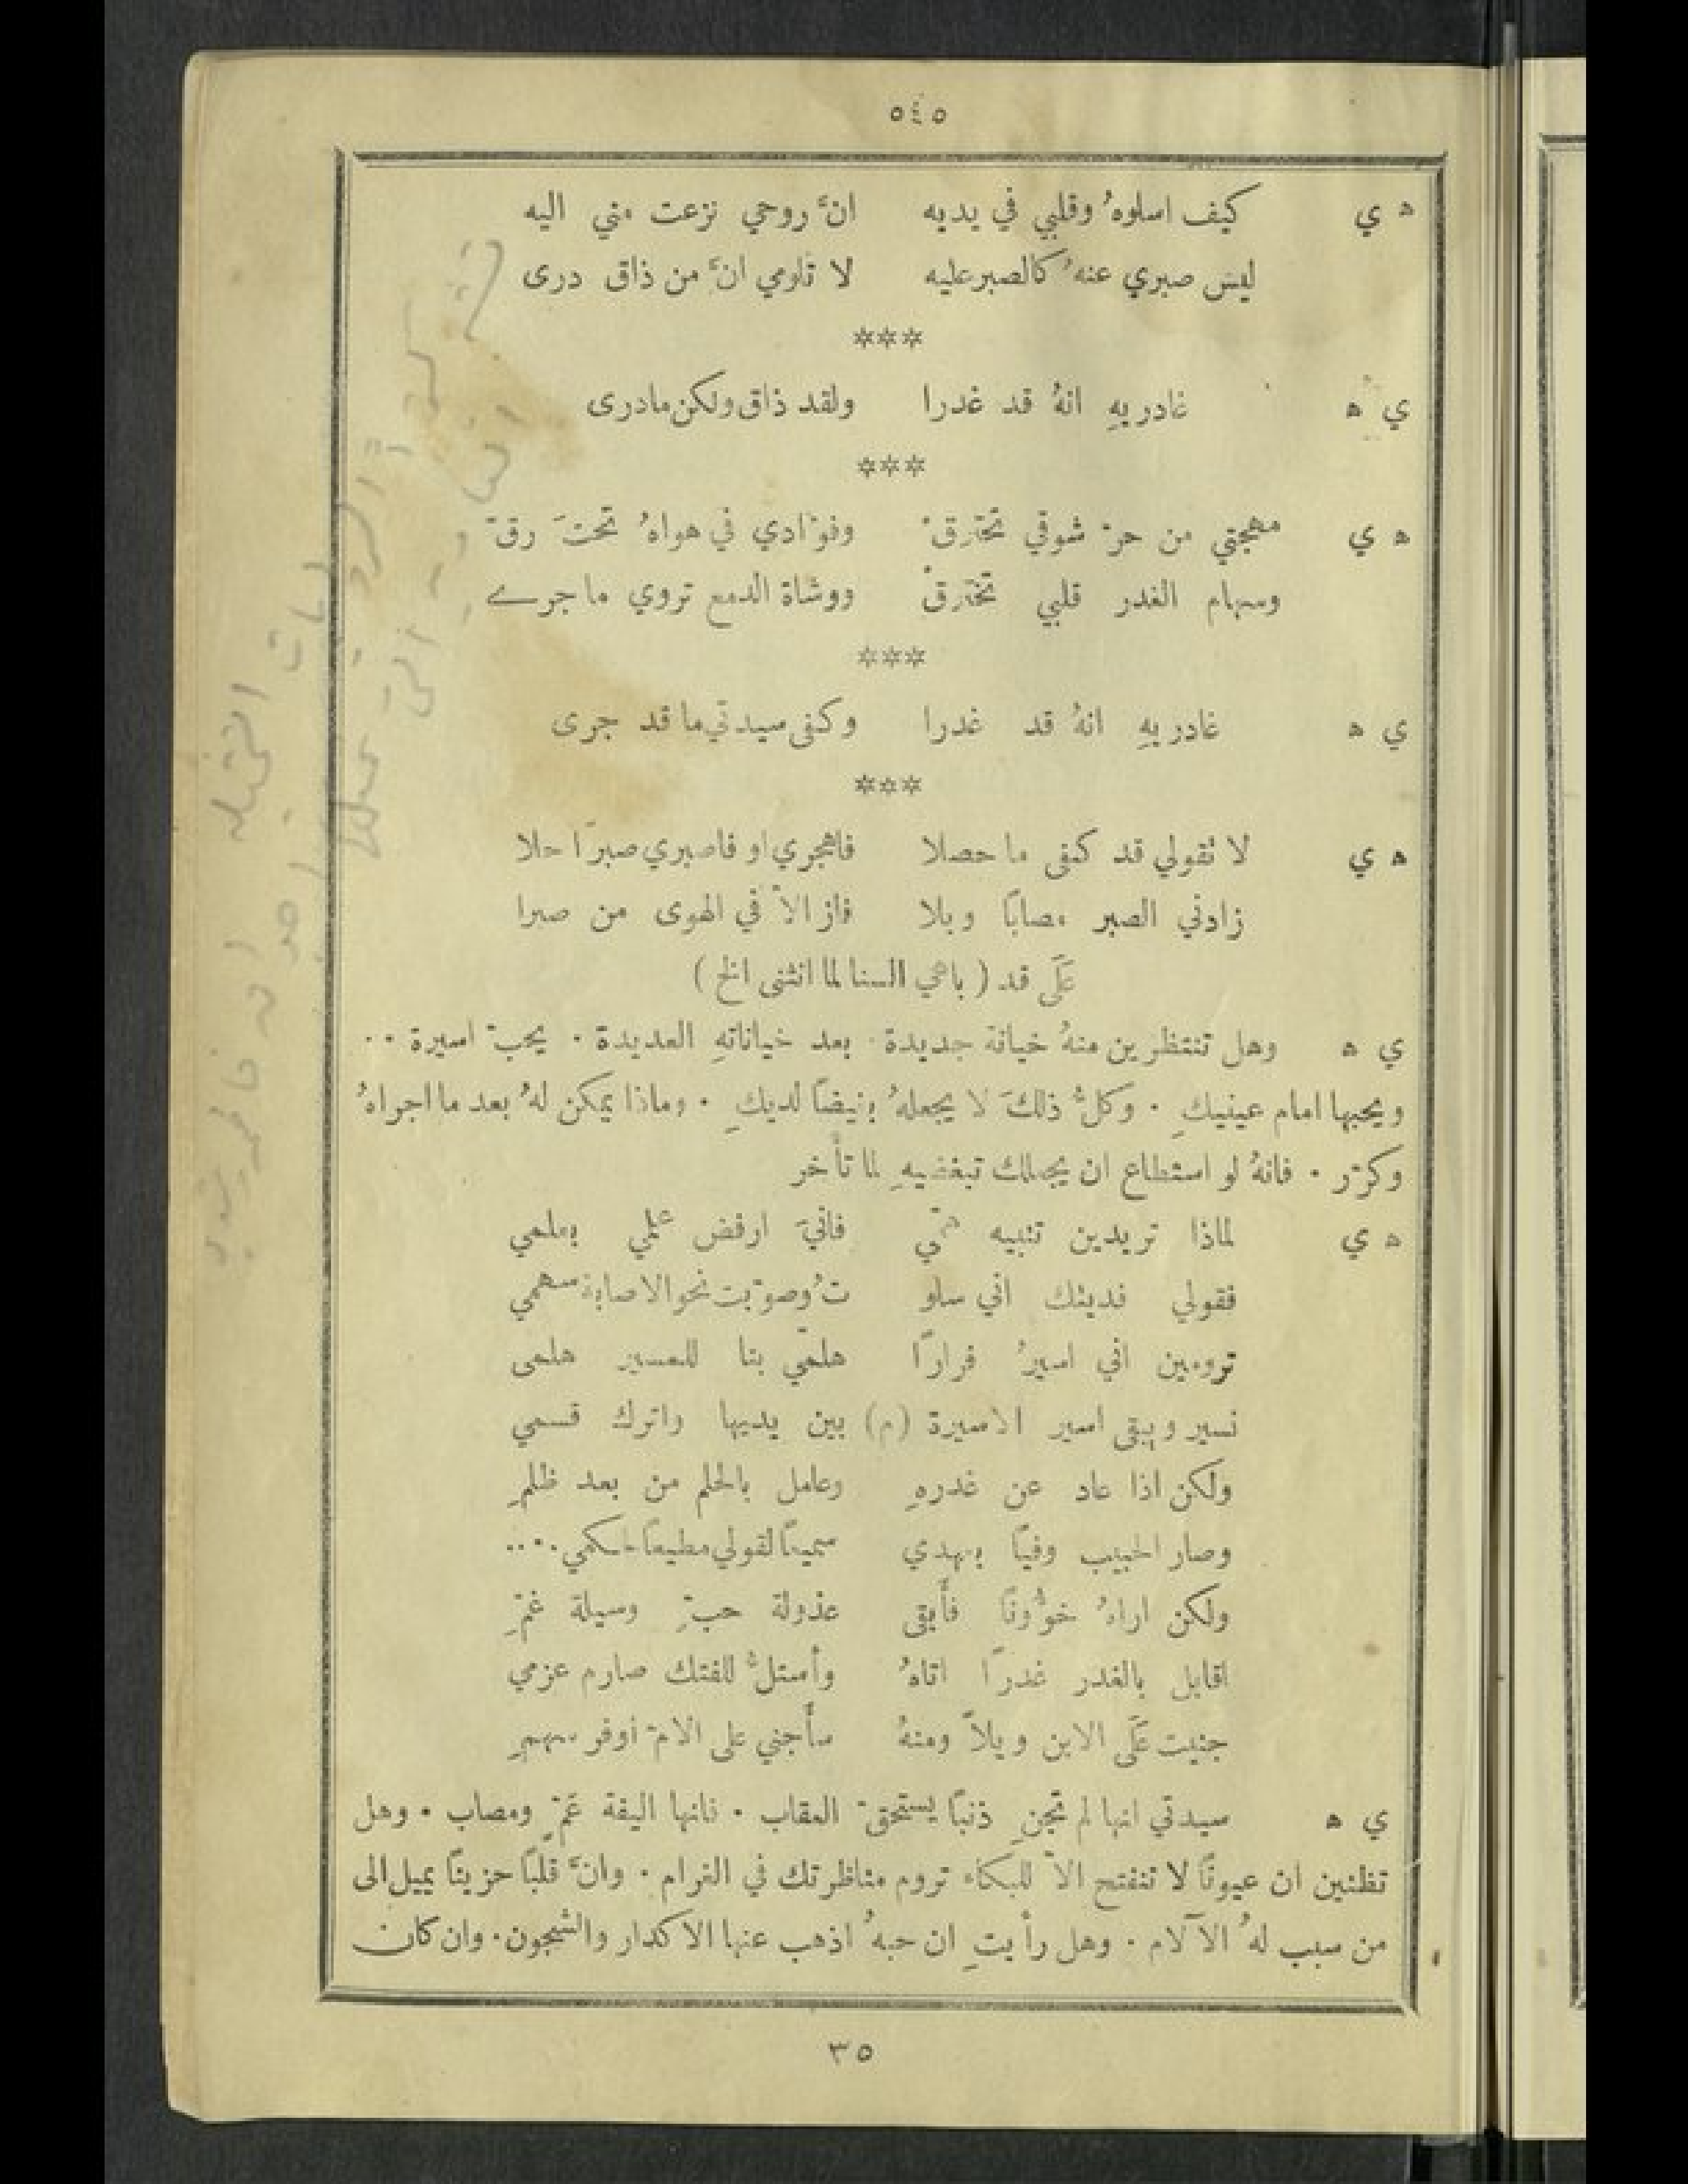 ٥٤٥
ه ي كيف اسلوهُ وقلبي في يديه انَّ روحي نزعت مني اليه
ليس صبري عنهُ كالصبر عليه لا تلومي انَّ من ذاق درى
***
ي ه غادريهِ انهُ قد غدرا ولقد ذاق ولكن مادرى
***
ه ي مهجتي من حرّ شوقي تحترقْ وفوّادي في هواهُ تحتَ رقّ
وسهام الغدر قلبي تخترقْ ووشاة الدمع تروي ما جرے
***
ي ه غادريهِ انهُ قد غدرا وكفى سيدتي ما قد جرى
***
ه ي لا تقولي قد كفى ما حصلا فاهجري او فاصبري صبرًا حلا
زادني الصبر مصابًا وبلا فاز الاّ في الهوى من صبرا
عَلَى قد ( باهي السنا لما انثنى الخ )
ي ه وهل تنتظرين منهُ خيانة جديدة . بعد خياناتهِ العديدة . يحبّ اسيرة . .
ويحبها امام عينيكِ . وكلُّ ذلكَ لا يجعلهُ بغيضًا لديكِ . وماذا يمكن لهُ بعد ما اجراهُ
وكرّر . فانهُ لو استطاع ان يجعلك تبغضيهِ لما تأخر
ه ي لماذا تريدين تنبيه همّي فانيَ ارفض علمي بعلمي
فقولي فديتك اني سلو تُ وصوّبت نحو الاصابة سهمي
ترومين اني اسيرُ فرارًا هلمّي بنا للمسير هلمى
نسير ويبقى اسير الاسيرة (م) بين يديها واترك قسمي
ولكن اذا عاد عن غدرهِ وعامل بالحلم من بعد ظلمِ
وصار الحبيب وفيًا بعهدي سميعًا لقولي مطيعًا لحكمي . . . .
ولكن اراهُ خوُّونًا فأبقى عذولة حبّ وسيلة غمِّ
اقابل بالغدر غدرًا اتاهُ وأستلُّ للفتك صارم عزمي
جنيت عَلَى الابن ويلاً ومنهُ سأجني على الامّ اوفر سهمِ
ي ه سيدتي انها لم تجنِ ذنبًا يستحقّ العقاب . فانها اليفة غمّ ومصاب . وهل
تظنين ان عيونًا لا تنفتح الاّ للبكاء تروم مناظرتك في الغرام . وانَّ قلبًا حزينًا يميل الى
من سبب لهُ الآلام . وهل رأيتِ ان حبهُ اذهب عنها الاكدار والشجون . وان كان
٣٥